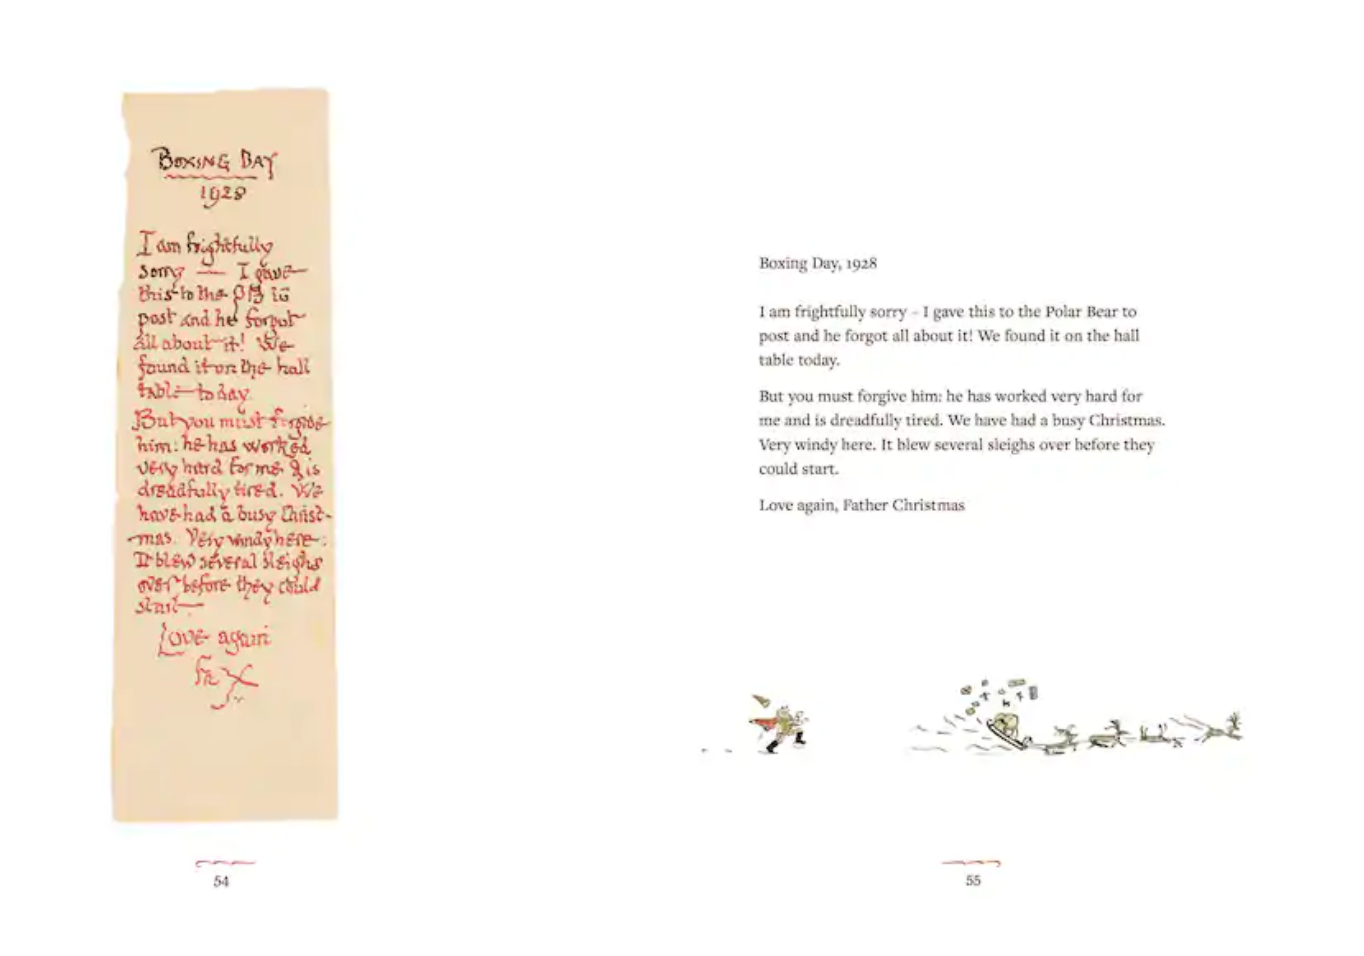 BOXING DAY
1928
I am frightfully
sorry — I gave
this to the PB to
post and he forgot
all about it! We
found it on the hall
table today.
But you must forgive
him: he has worked
very hard for me & is
dreadfully tired. We
have had a busy Christ-
mas. Very windy here:
It blew several sleighs
over before they could
start—
Love again
54
Boxing Day, 1928
I am frightfully sorry – I gave this to the Polar Bear to
post and he forgot all about it! We found it on the hall
table today.
But you must forgive him: he has worked very hard for
me and is dreadfully tired. We have had a busy Christmas.
Very windy here. It blew several sleighs over before they
could start.
Love again, Father Christmas
55